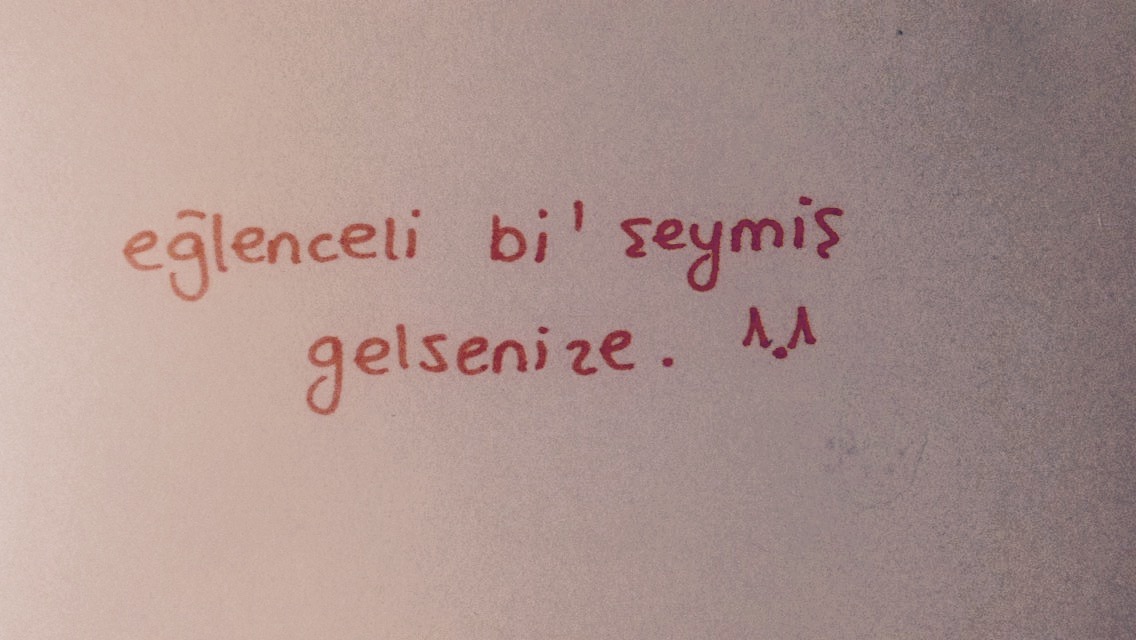 eğlenceli bi' şeymiş
gelsenize. ^.^